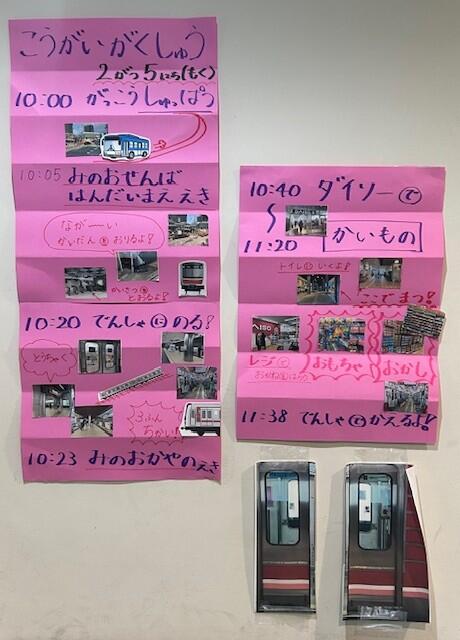 こうがいがくしゅう
2がつ5にち(もく)
10:00 がっこうしゅっぱつ
10:05 みのおせんば
はんだいまええき
ながーい
かいだん を おりるよ!
かいさつ を
とおるよ!
10:20 でんしゃ に のる!
とうちゃく
3ぷん
ちかい!
10:23 みのおかやのえき
10:40 ダイソー で
〜
11:20 かいもの
トイレ に いくよ!
ここでまつ!
レジ で
おかね を はらう
おもちゃ
おかし
11:38 でんしゃ で かえるよ!